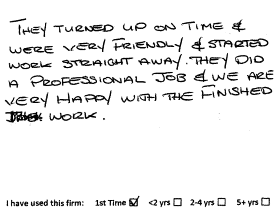 THEY TURNED UP ON TIME &
WERE VERY FRIENDLY & STARTED
WORK STRAIGHT AWAY. THEY DID
A PROFESSIONAL JOB & WE ARE
VERY HAPPY WITH THE FINISHED
WORK.
I have used this firm: 1st Time ☑ <2 yrs ☐ 2-4 yrs ☐ 5+ yrs ☐